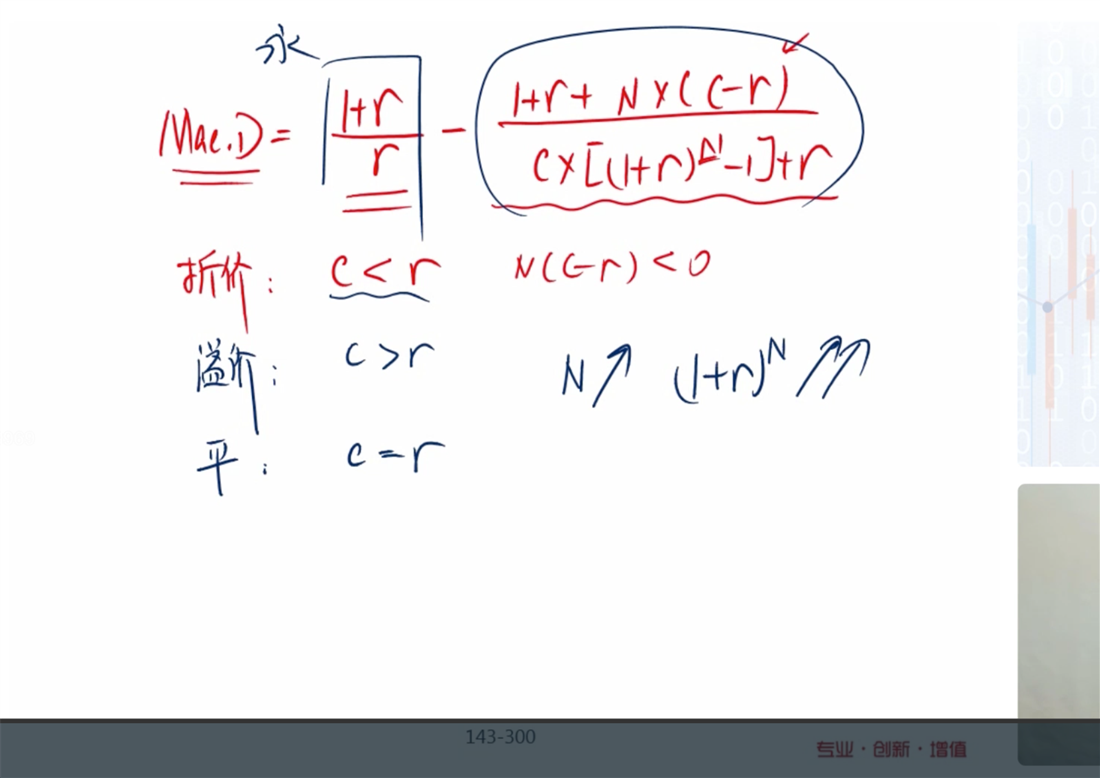 永
Mac.D = (1+r)/r - (1+r+N×(c-r))/(c×[(1+r)^N-1]+r)
折价: c<r N(c-r)<0
溢价: c>r N↗ (1+r)^N ↗↗
平: c=r
143-300
专业·创新·增值